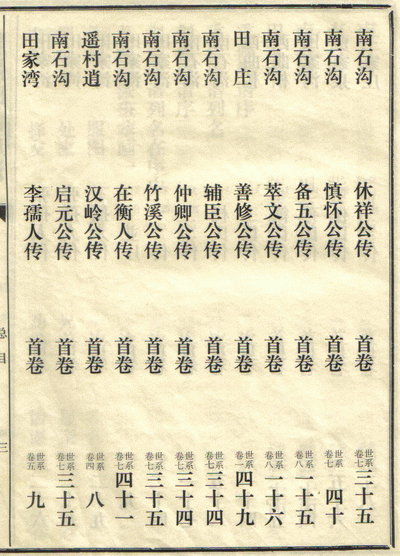 南石沟 休祥公传 首卷 世系卷七 三十五
南石沟 慎怀公传 首卷 世系卷七 四十
南石沟 备五公传 首卷 世系卷八 一十五
南石沟 萃文公传 首卷 世系卷八 一十六
田庄 善修公传 首卷 世系卷一 四十九
南石沟 辅臣公传 首卷 世系卷七 三十四
南石沟 仲卿公传 首卷 世系卷七 三十四
南石沟 竹溪公传 首卷 世系卷七 三十五
南石沟 在衡人传 首卷 世系卷七 四十一
遥村逍 汉岭公传 首卷 世系卷四 八
南石沟 启元公传 首卷 世系卷七 三十五
田家湾 李孺人传 首卷 世系卷五 九
总目
三